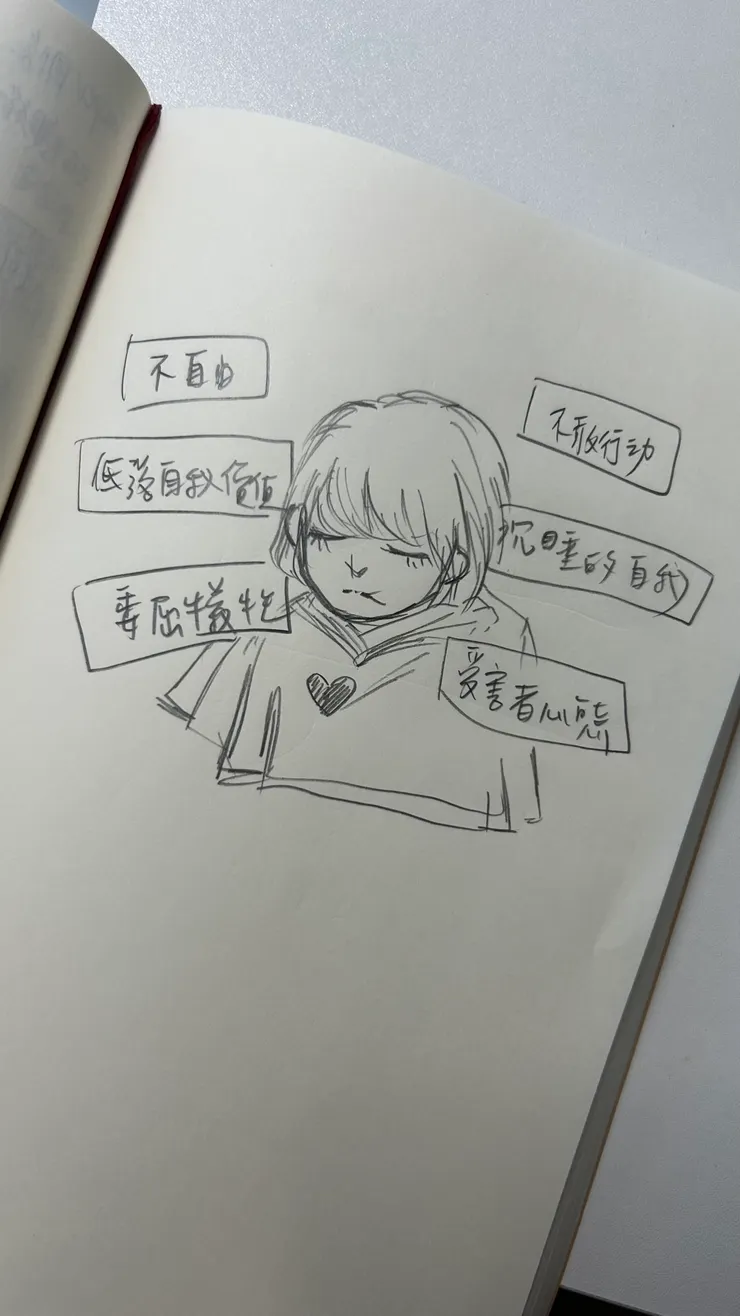 不自由
不敢行动
低落自我價值
沉睡的自我
委屈犧牲
受害者心態